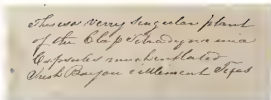 This is a verry singular plant
of the Clas Tetradynamia
Capsules much inflated
Bayou settlement Texas